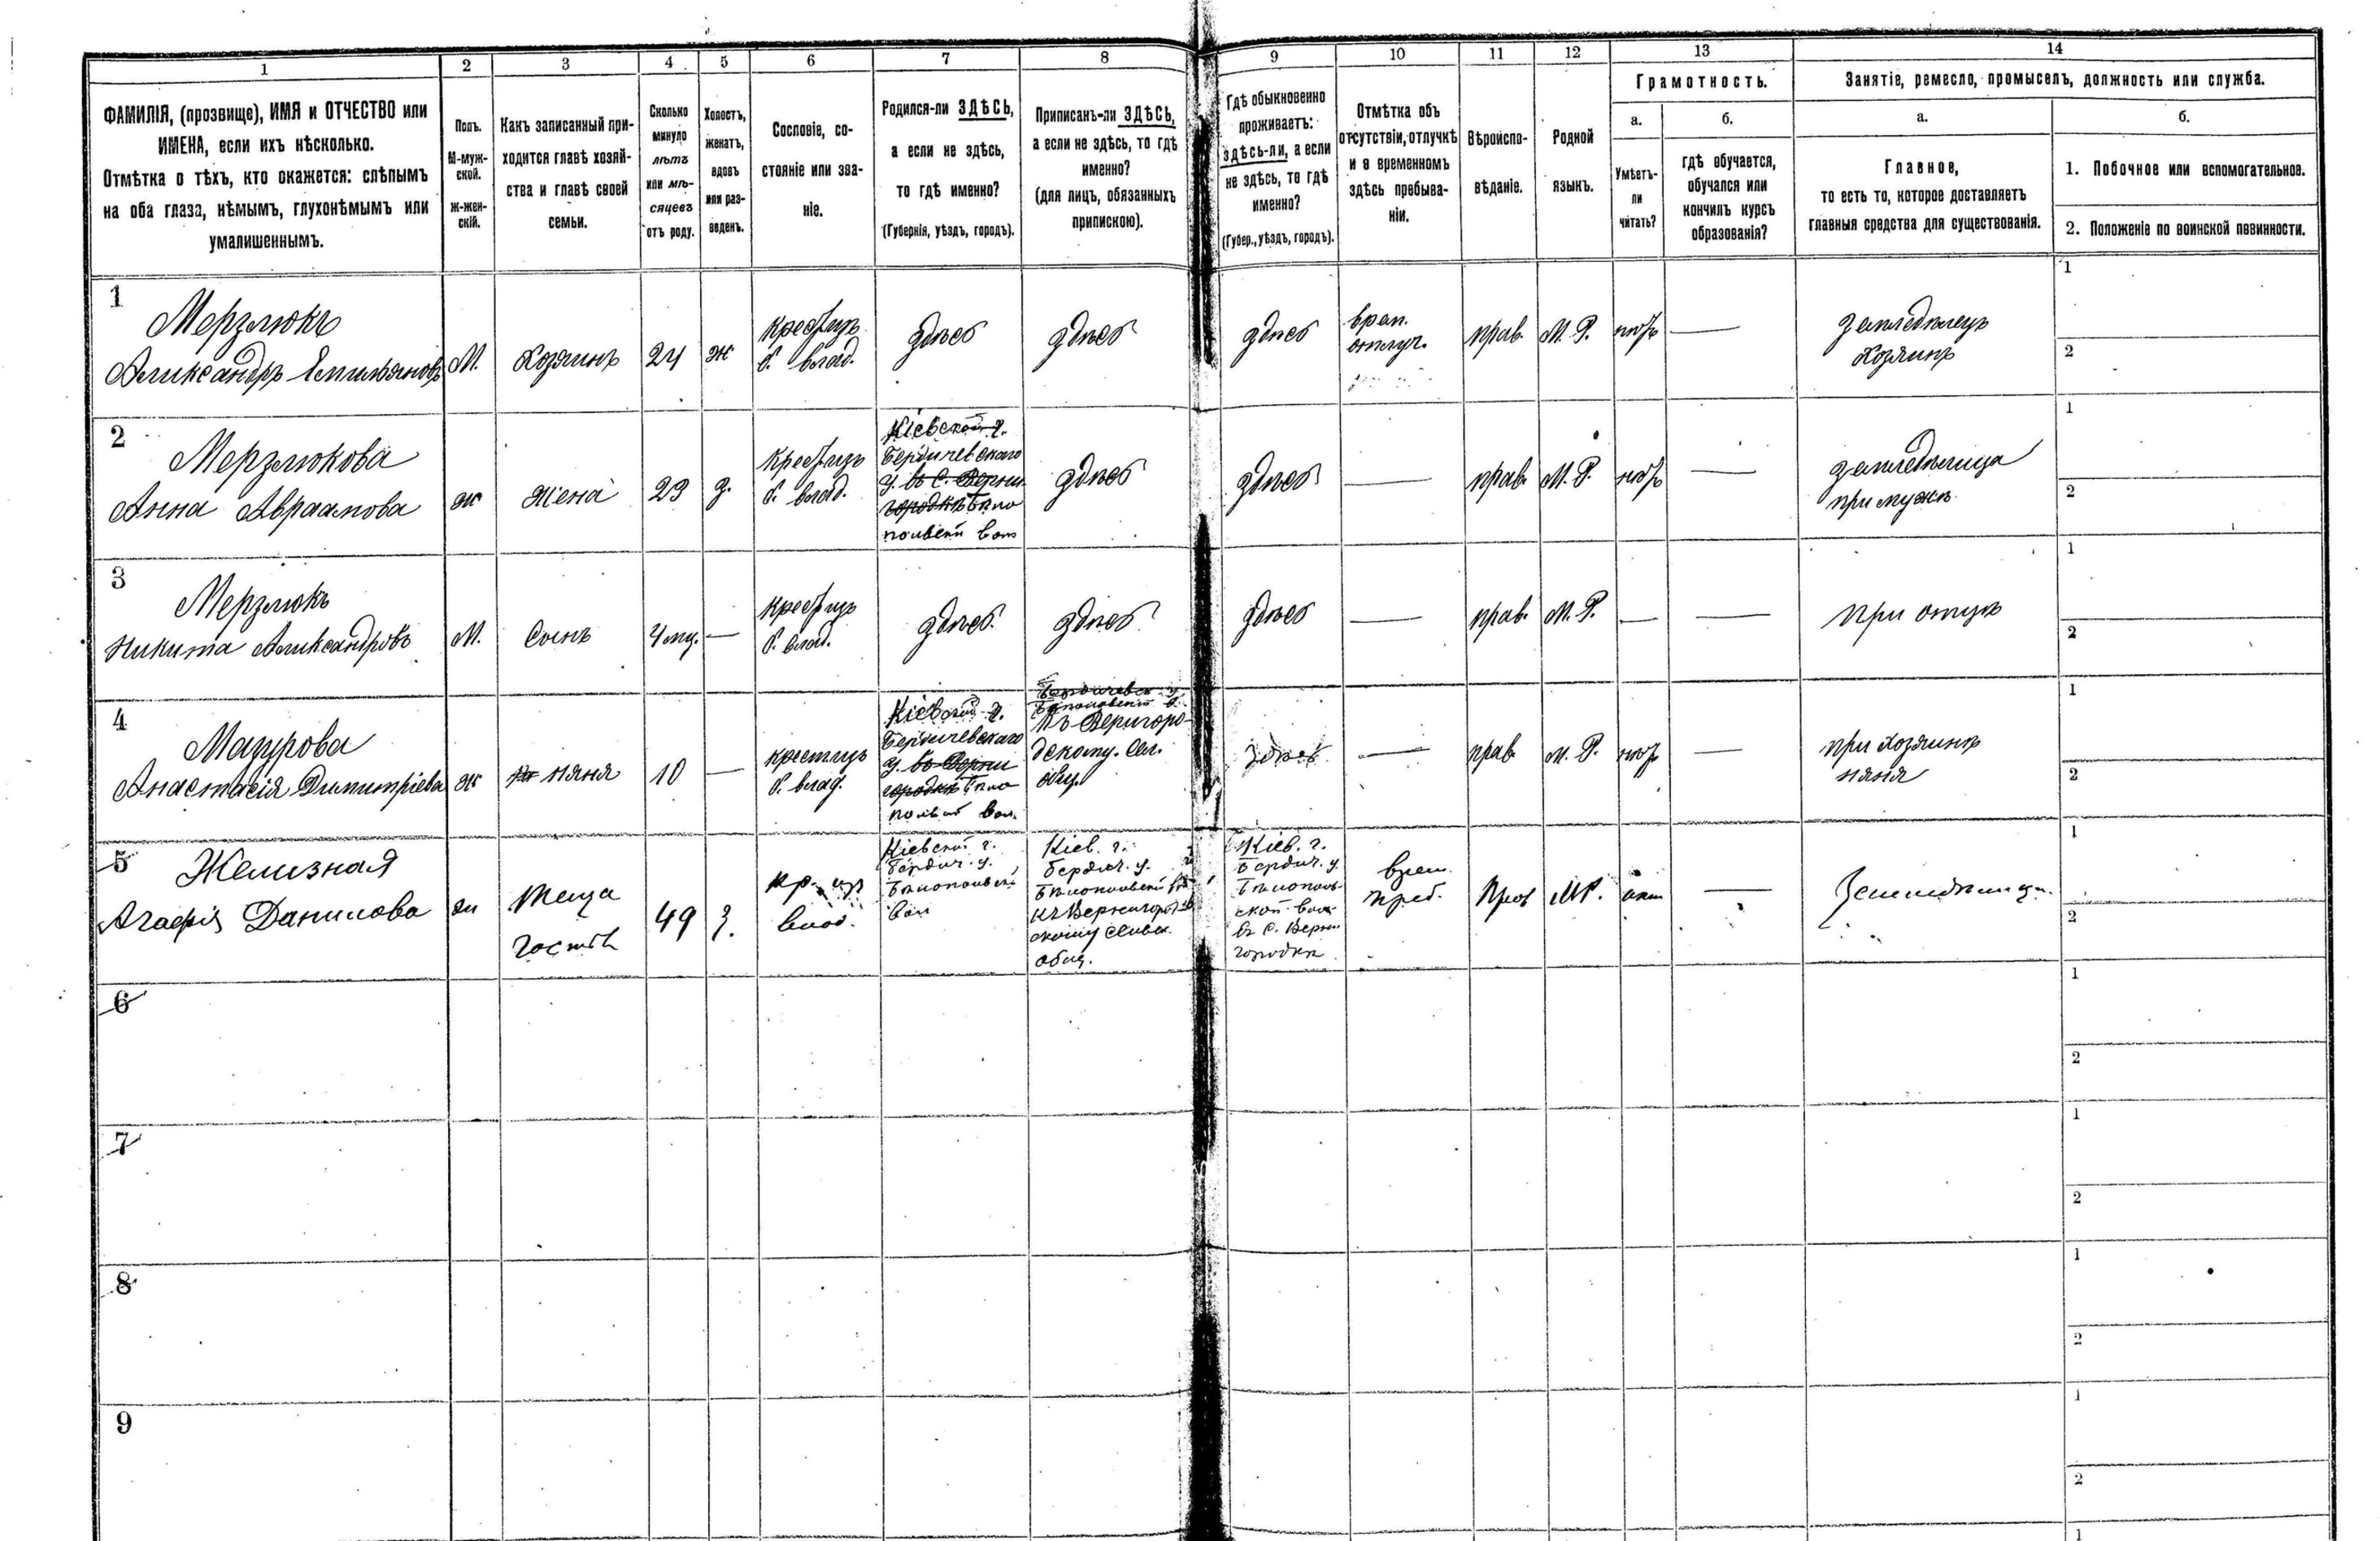 1
2
3
4
5
6
7
8
9
10
11
12
13
14
ФАМИЛІЯ, (прозвище), ИМЯ и ОТЧЕСТВО или
ИМЕНА, если ихъ нѣсколько.
Отмѣтка о тѣхъ, кто окажется: слѣпымъ
на оба глаза, нѣмымъ, глухонѣмымъ или
умалишеннымъ.
Полъ.
М-муж-
ской.
ж-жен-
скій.
Какъ записанный при-
ходится главѣ хозяй-
ства и главѣ своей
семьи.
Сколько
минуло
лѣтъ
или мѣ-
сяцевъ
отъ роду.
Холостъ,
женатъ,
вдовъ
или раз-
веденъ.
Сословіе, со-
стояніе или зва-
ніе.
Родился-ли ЗДѢСЬ,
а если не здѣсь,
то гдѣ именно?
(Губернія, уѣздъ, городъ).
Приписанъ-ли ЗДѢСЬ,
а если не здѣсь, то гдѣ
именно?
(для лицъ, обязанныхъ
припискою).
Гдѣ обыкновенно
проживаетъ:
здѣсь-ли, а если
не здѣсь, то гдѣ
именно?
(Губер., уѣздъ, городъ).
Отмѣтка объ
отсутствіи, отлучкѣ
и о временномъ
здѣсь пребыва-
ніи.
Вѣроиспо-
вѣданіе.
Родной
языкъ.
Грамотность.
а.
Умѣетъ-
ли
читать?
б.
гдѣ обучается,
обучался или
кончилъ курсъ
образованія?
Занятіе, ремесло, промыселъ, должность или служба.
а.
Главное,
то есть то, которое доставляетъ
главныя средства для существованія.
б.
1. Побочное или вспомогательное.
2. Положеніе по воинской повинности.
1
Мерзлюкъ
Александръ Емильяновъ
М.
Хозяинъ
24
ж
б. влад.
здѣсь
здѣсь
здѣсь
отлуч.
прав.
М. Р.
—
Хозяинъ
1
2
2
Мерзлюкова
Анна Авраамова
ж
Жена
23
з.
б. влад.
Кіевской г.
Бердичевскаго
у. въ с. Верни
городкѣ Бѣло
здѣсь
здѣсь
—
прав.
М. Р.
—
при мужѣ
1
2
3
Мерзлюкъ
Никита Александровъ
М.
Сынъ
—
б. влад.
здѣсь
здѣсь
здѣсь
—
прав.
М. Р.
—
—
при отцѣ
1
2
4
Мазурова
Анастасія Димитріева
ж
няня
10
—
б. влад.
Кіевской г.
Бердичевскаго
у. въ Верни
городкѣ Бѣло
здѣсь
—
прав.
М. Р.
—
при хозяинѣ
няня
1
2
5
Желизная
Агафія Данилова
Теща
гостья
49
з.
Кіевской г.
Бердич. у.
вол.
Кіев. г.
Бердич. у.
общ.
Кіев. г.
Бердич. у.
въ с. Верни
городкѣ
врем.
преб.
М.Р.
—
1
2
6
1
2
7
1
2
8
1
2
9
1
2
1